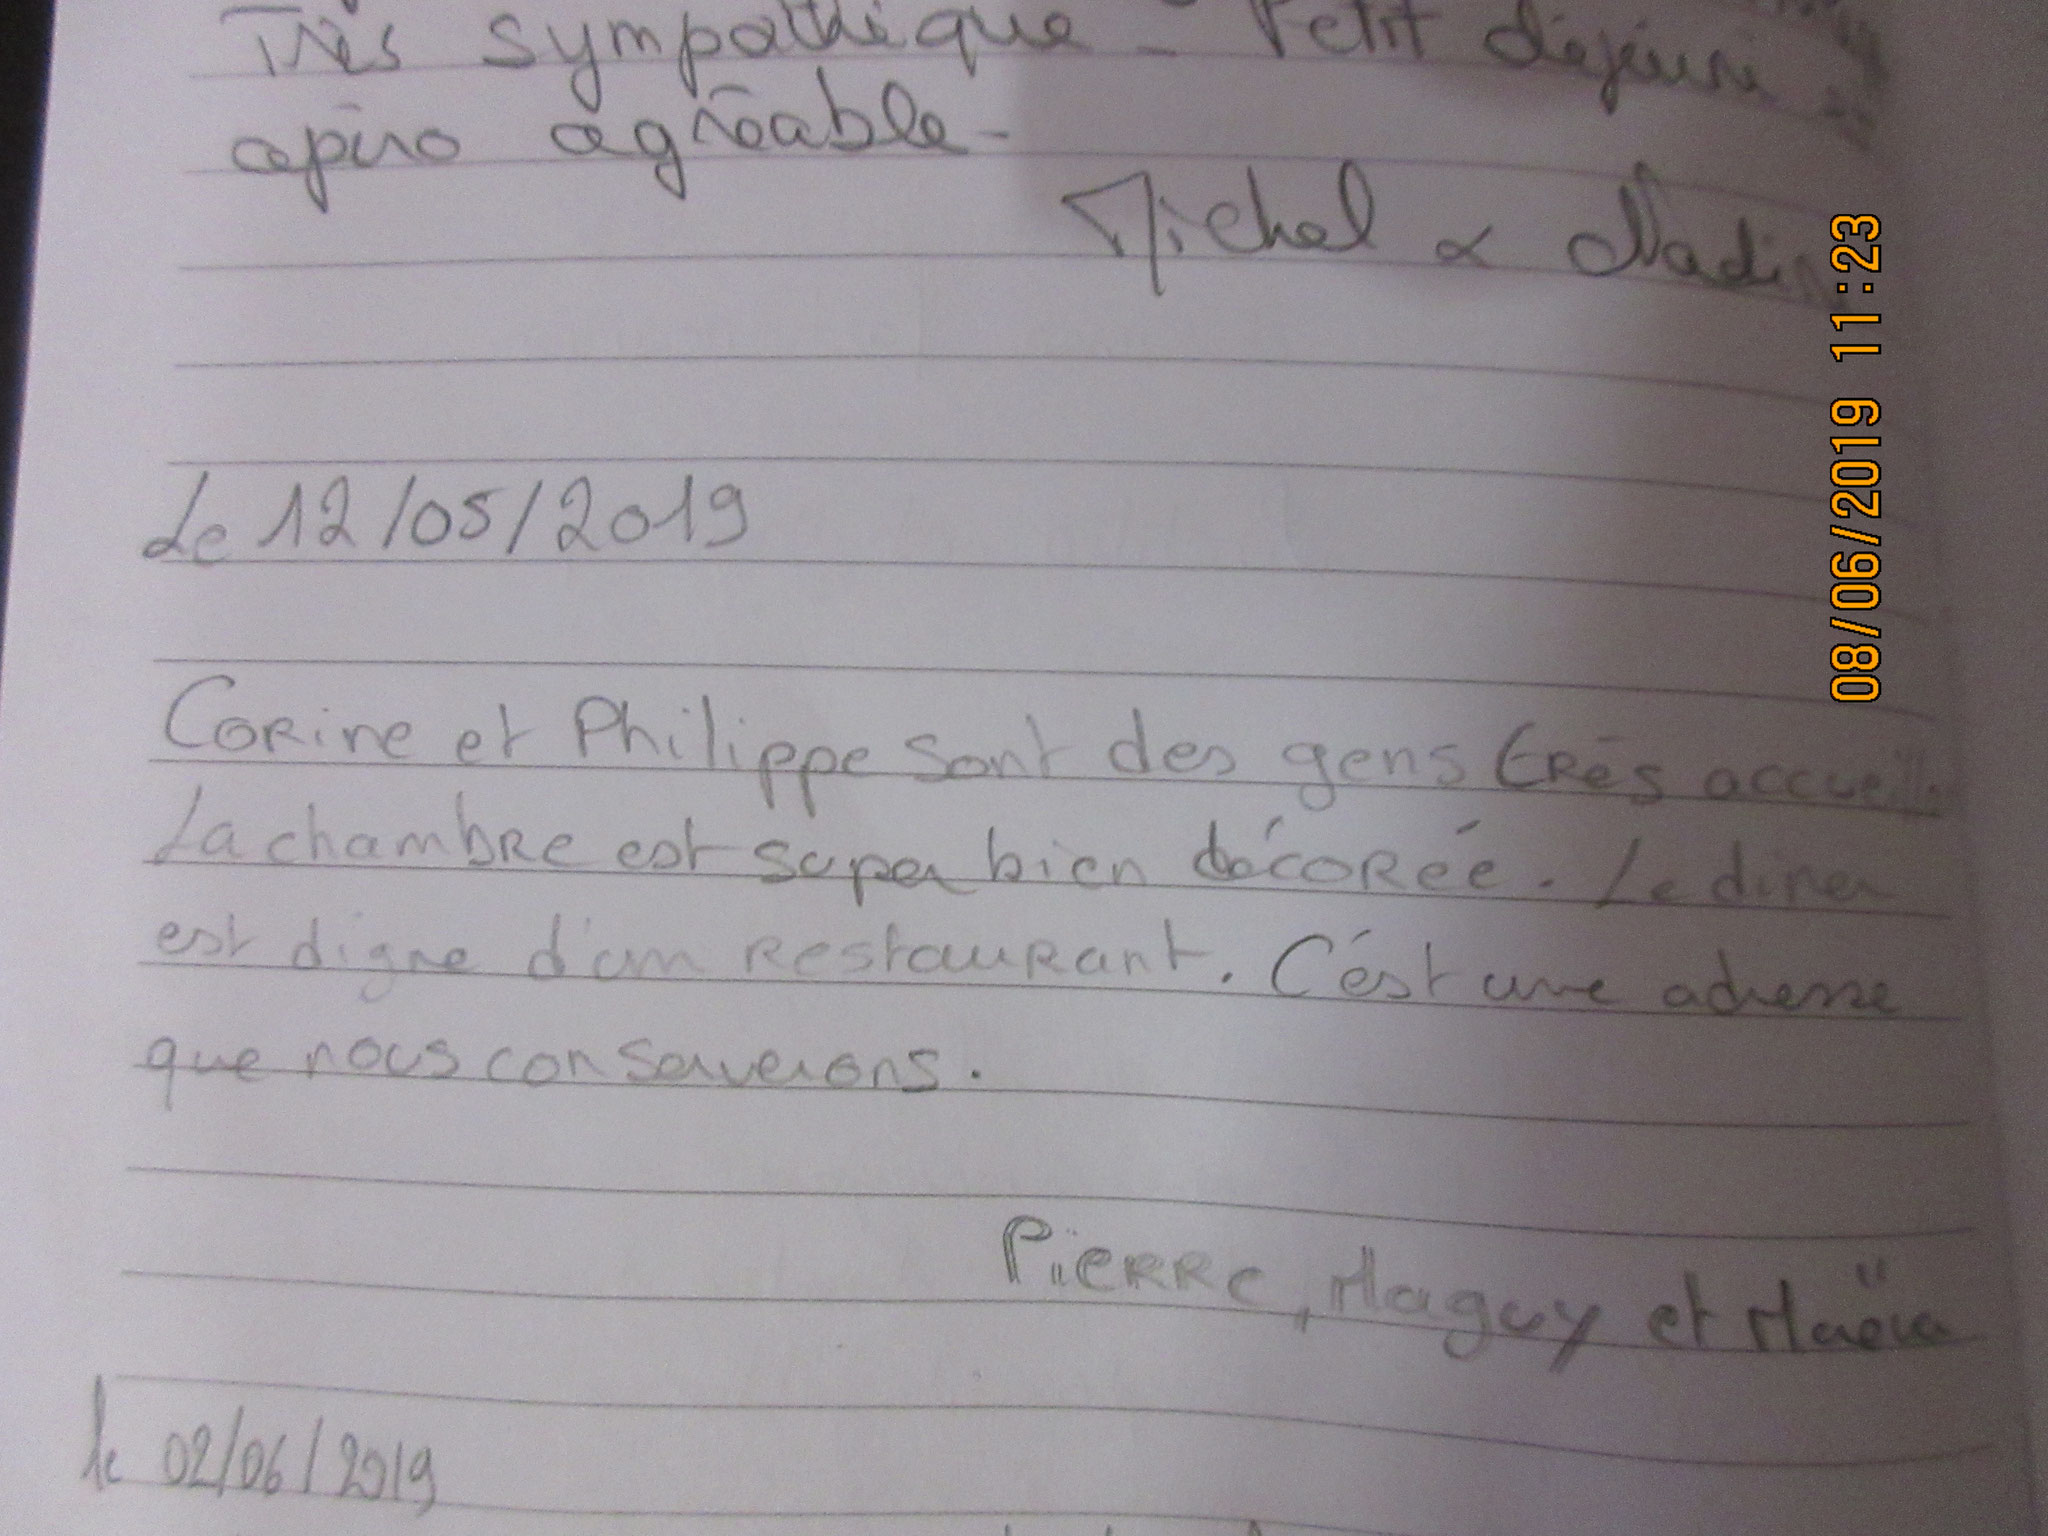 Très sympathique - Petit déjeuné
apéro agréable -
Michel & Nadin
Le 12/05/2019
Corine et Philippe sont des gens très accueil.
La chambre est super bien décorée. Le diner
est digne d'un restaurant. C'est une adresse
que nous conserverons.
Pierre, Maguy et Maëva
le 02/06/2019
08/06/2019 11:23